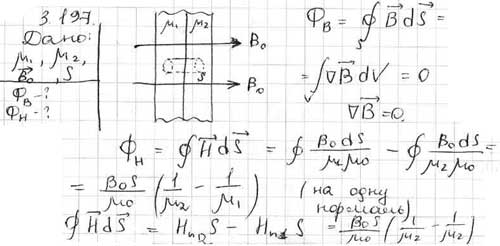 3.197.
Дано:
μ₁, μ₂,
B⃗₀, S
Φ_B - ?
Φ_H - ?
μ₁ μ₂
B₀
S
B₀
Φ_B = ∮_S B⃗ dS⃗ =
= ∫_V ∇B⃗ dV = 0
∇B⃗ = 0.
Φ_H = ∮ H⃗ dS⃗ = ∮ B₀dS/μ₁μ₀ - ∮ B₀dS/μ₂μ₀ =
= B₀S/μ₀ (1/μ₂ - 1/μ₁) (на одну нормаль)
∮ H⃗ dS⃗ = H_n₂ S - H_n₁ S = B₀S/μ₀ (1/μ₂ - 1/μ₁)